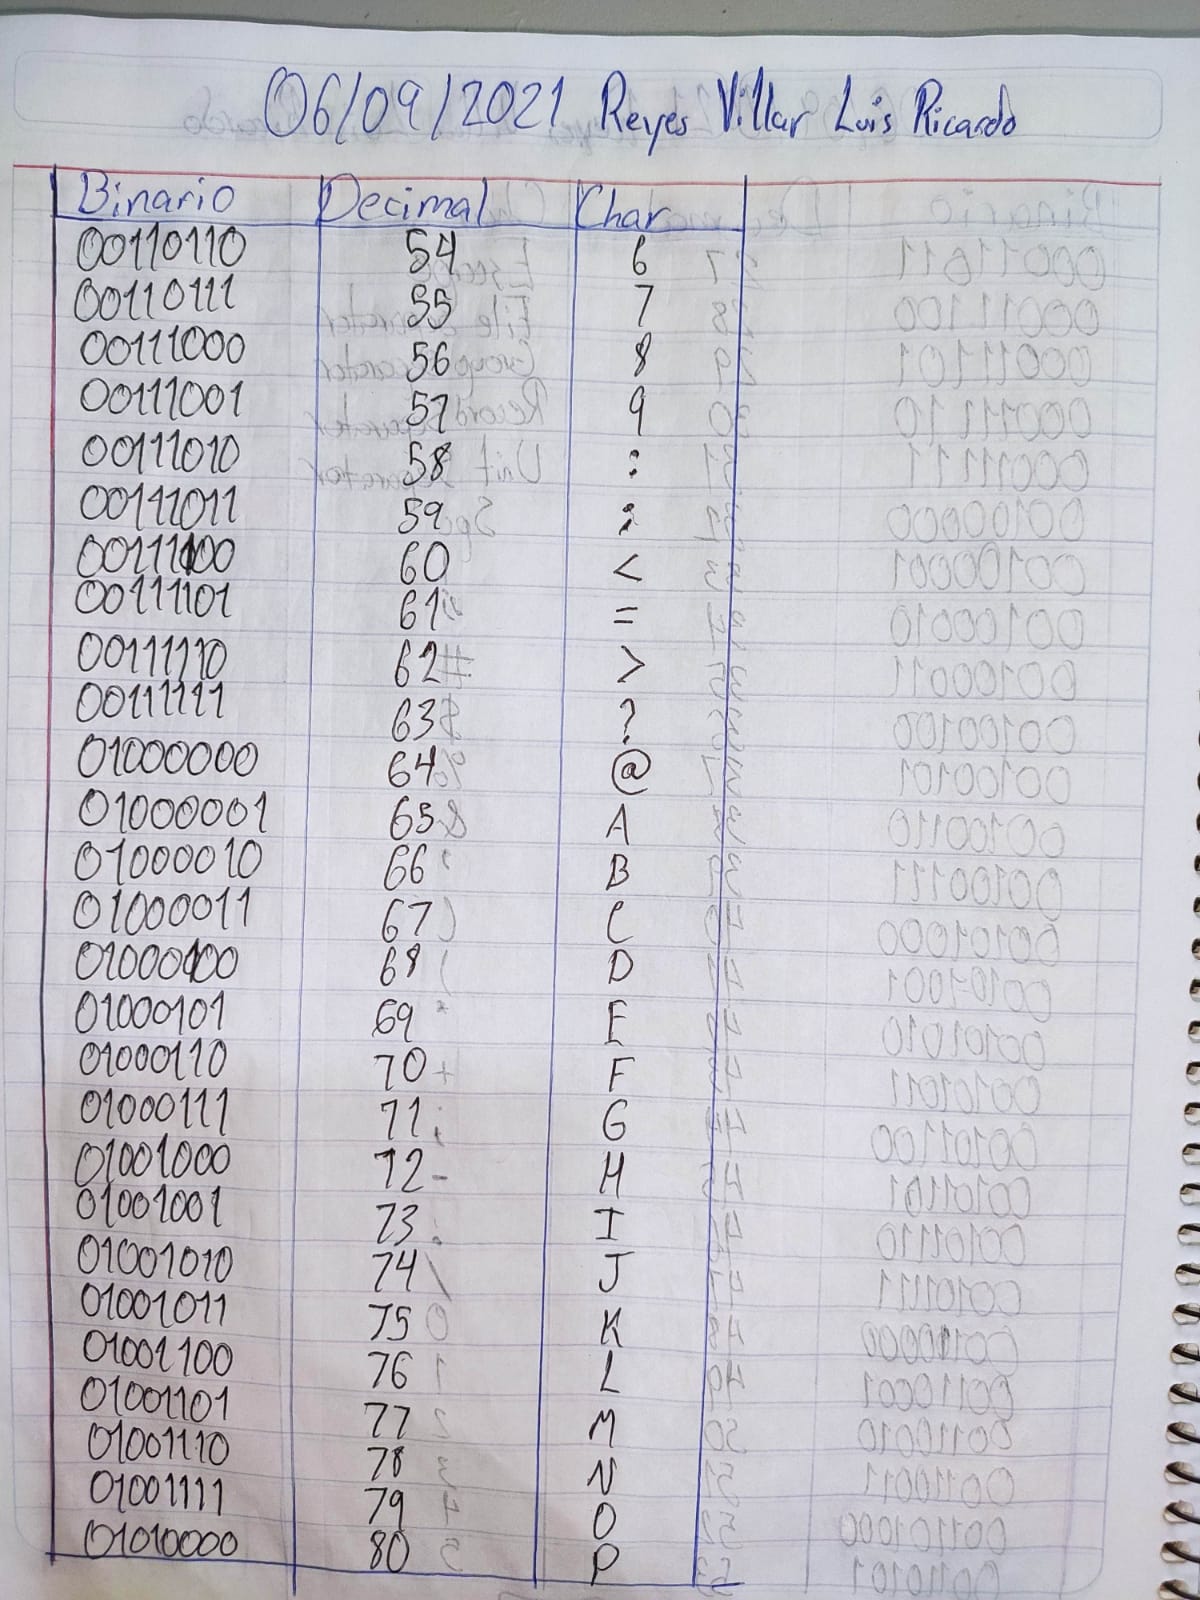 06/09/2021 Reyes Villar Luis Ricardo
Binario Decimal Char
00110110 54 6
00110111 55 7
00111000 56 8
00111001 57 9
00111010 58 :
00111011 59 ;
00111100 60 <
00111101 61 =
00111110 62 >
00111111 63 ?
01000000 64 @
01000001 65 A
01000010 66 B
01000011 67 C
01000100 68 D
01000101 69 E
01000110 70 F
01000111 71 G
01001000 72 H
01001001 73 I
01001010 74 J
01001011 75 K
01001100 76 L
01001101 77 M
01001110 78 N
01001111 79 O
01010000 80 P